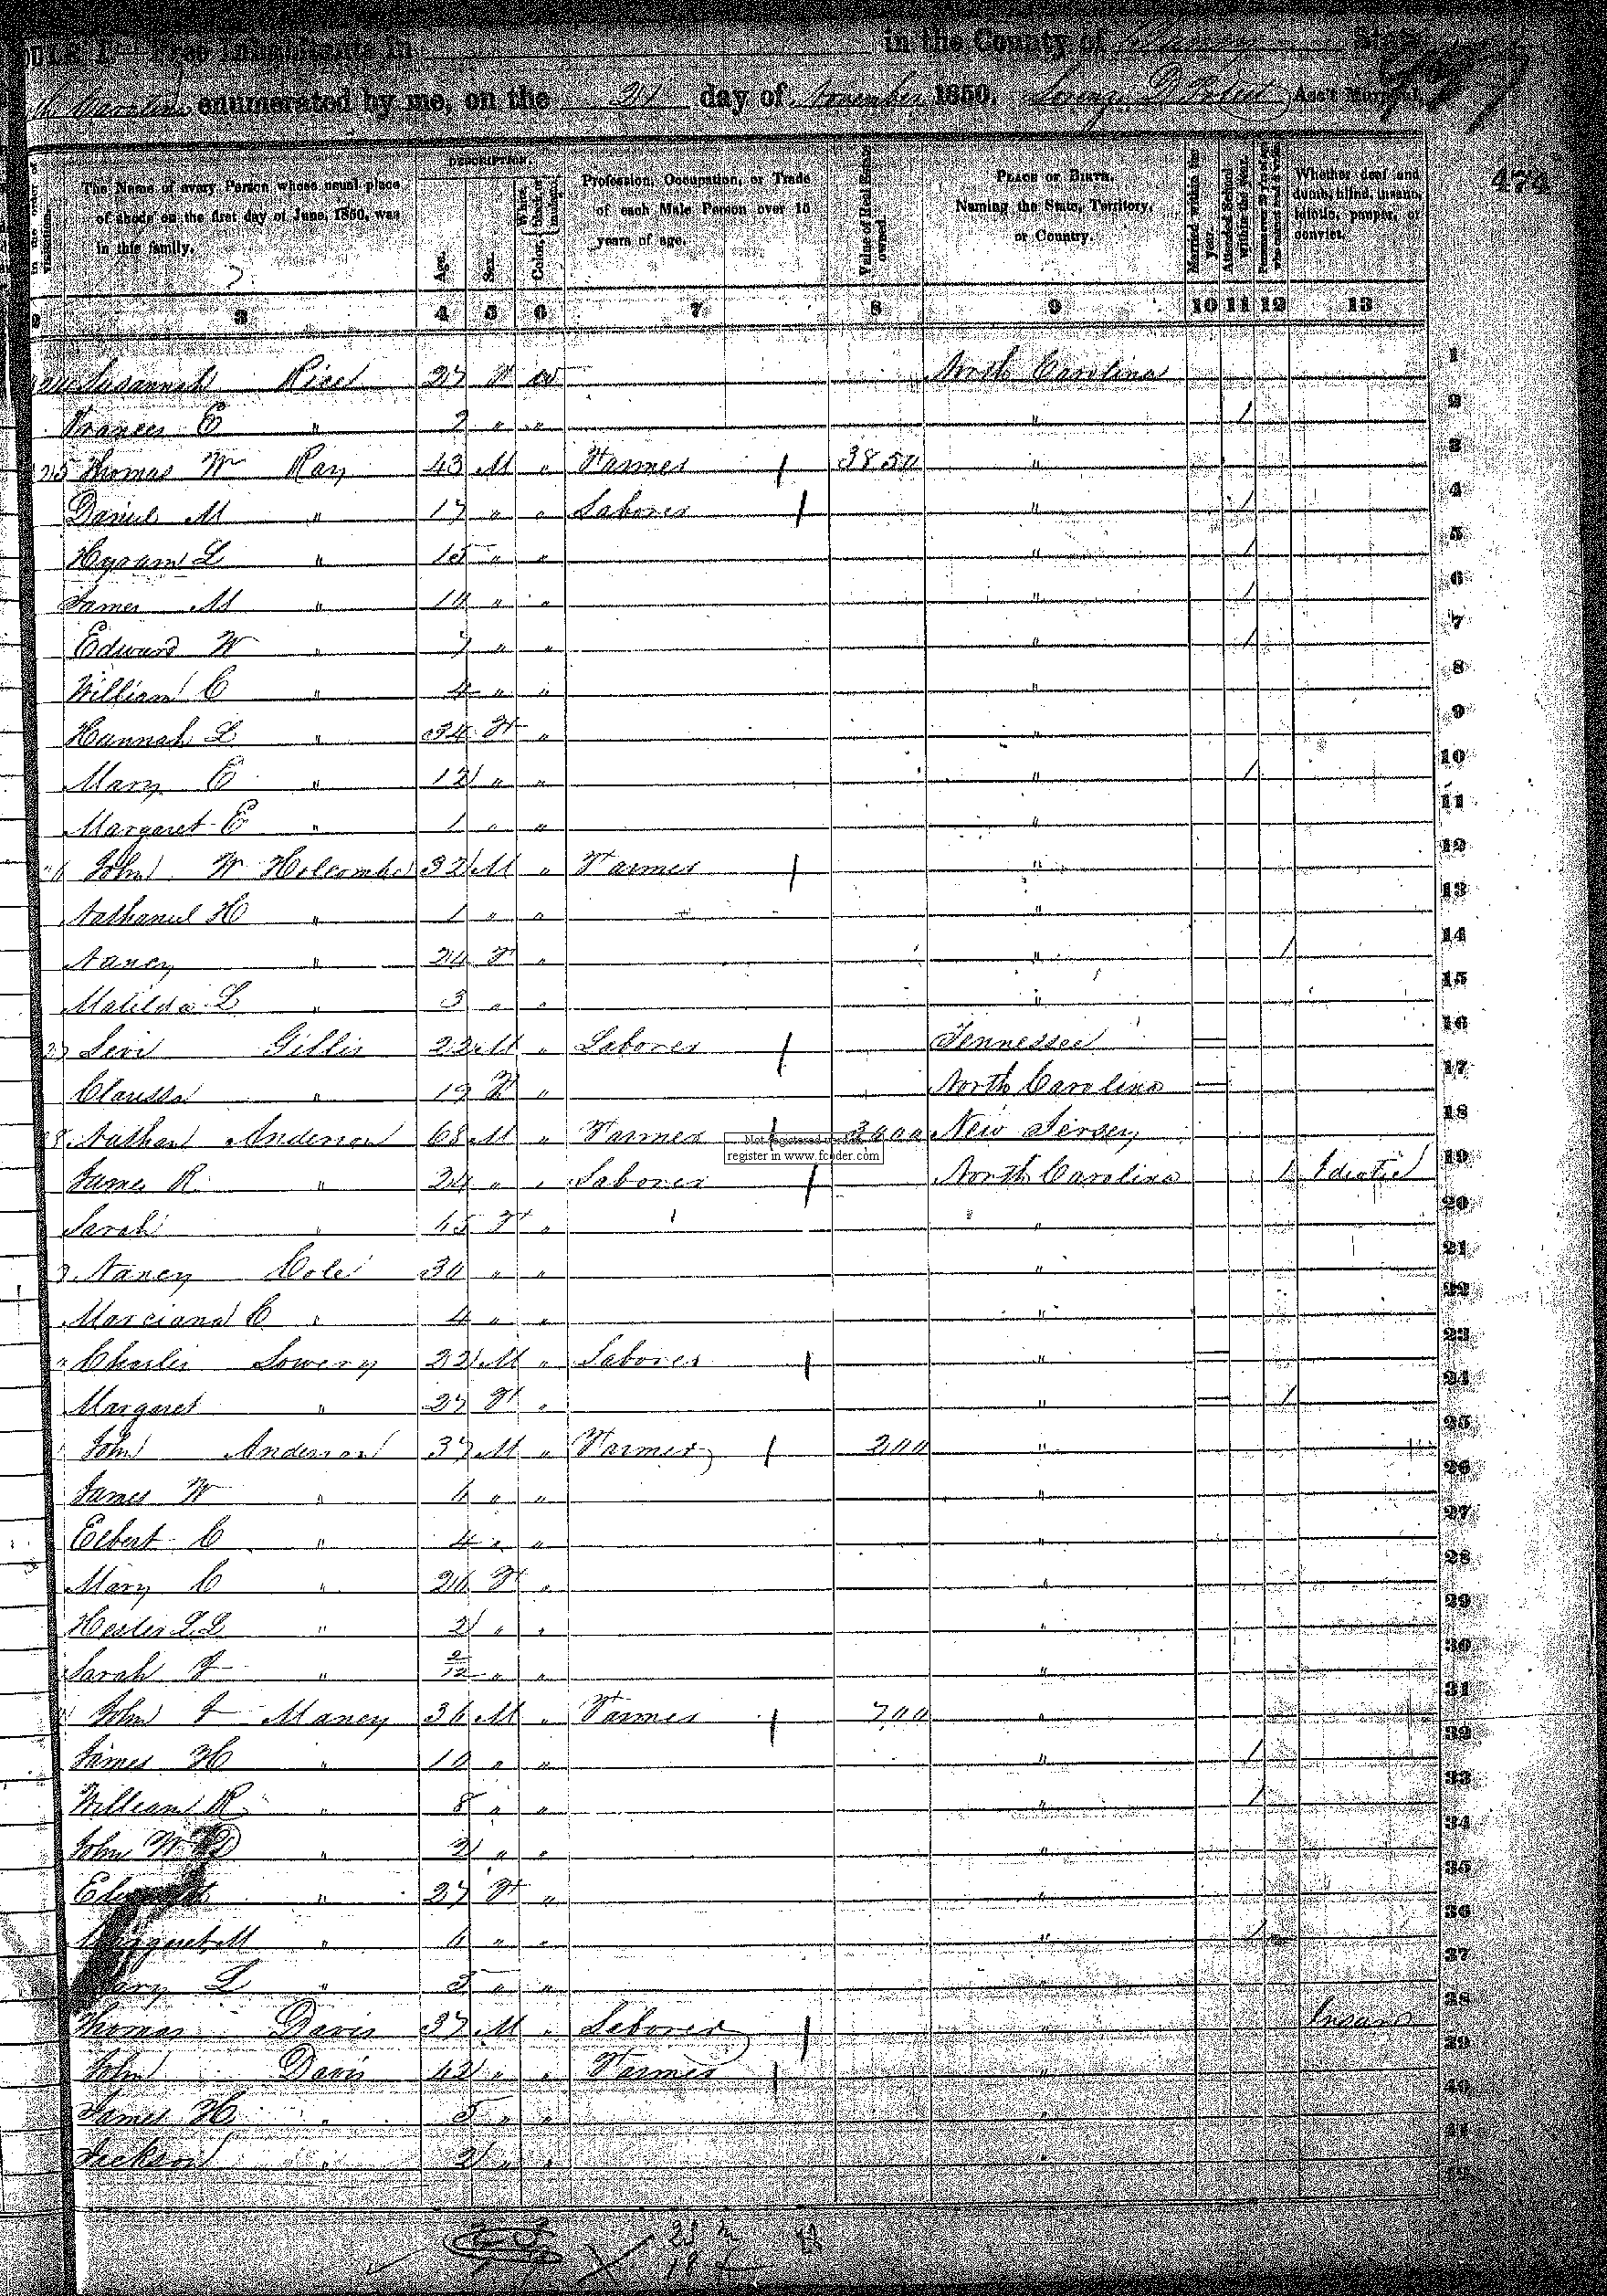 Free Inhabitants in in the County of Yancey State
Carolina enumerated by me, on the 21 day of November 1850. D Ass't Marshal.
The Name of every Person whose usual place of abode on the first day of June, 1850, was in this family.
DESCRIPTION.
Age.
Sex.
Color, White, black, or mulatto.
Profession, Occupation, or Trade of each Male Person over 15 years of age.
Value of Real Estate owned.
PLACE OF BIRTH. Naming the State, Territory, or Country.
Married within the year.
Attended School within the Year.
Persons over 20 y'rs of age who cannot read & write.
Whether deaf and dumb, blind, insane, idiotic, pauper, or convict.
3 4 5 6 7 8 9 10 11 12 13
Susannah Rice 27 F W North Carolina 1
Frances E " 7 " " " / 2
Thomas W Ray 43 M " Farmer 3850 " 3
Daniel M " 17 " " Laborer " / 4
Hyram L " 15 " " " / 5
James M " 10 " " " / 6
Edward W " 7 " " " / 7
William C " 4 " " " 8
Hannah L " 34 F " " 9
Mary E " 12 " " " / 10
Margaret E " 1 " " " 11
John W Holcombe 32 M " Farmer " 12
Nathaniel H " 1 " " " 13
Nancy " 24 F " " / 14
Matilda L " 3 " " " 15
Levi Gillis 22 M " Laborer Tennessee 16
Clarissa " 19 F " North Carolina 17
Nathan Anderson 68 M " Farmer 3000 New Jersey 18
Not registered version
register in www.fcoder.com
James R " 24 " " Laborer North Carolina / Idiotic 19
Sarah " 45 F " " 20
Nancy Cole 30 " " " 21
Marciana C " 4 " " " 22
Charles Lowery 22 M " Laborer " 23
Margaret " 27 F " " / 24
John Anderson 37 M " Farmer 200 " 25
James W " 6 " " " 26
Elbert C " 4 " " " 27
Mary C " 26 F " " 28
Hester L L " 2 " " " 29
Sarah J " 2/12 " " " 30
John J Maney 36 M " Farmer 700 " 31
James H " 10 " " " / 32
William R " 8 " " " / 33
John W " 2 " " " 34
" 27 F " " 35
Margaret M " 6 " " " / 36
Mary L " 5 " " " 37
Thomas Davis 37 M " Laborer " Insane 38
John Davis 42 " " Farmer " 39
James H " 5 " " " 40
Jackson " 2 " " " 41
42